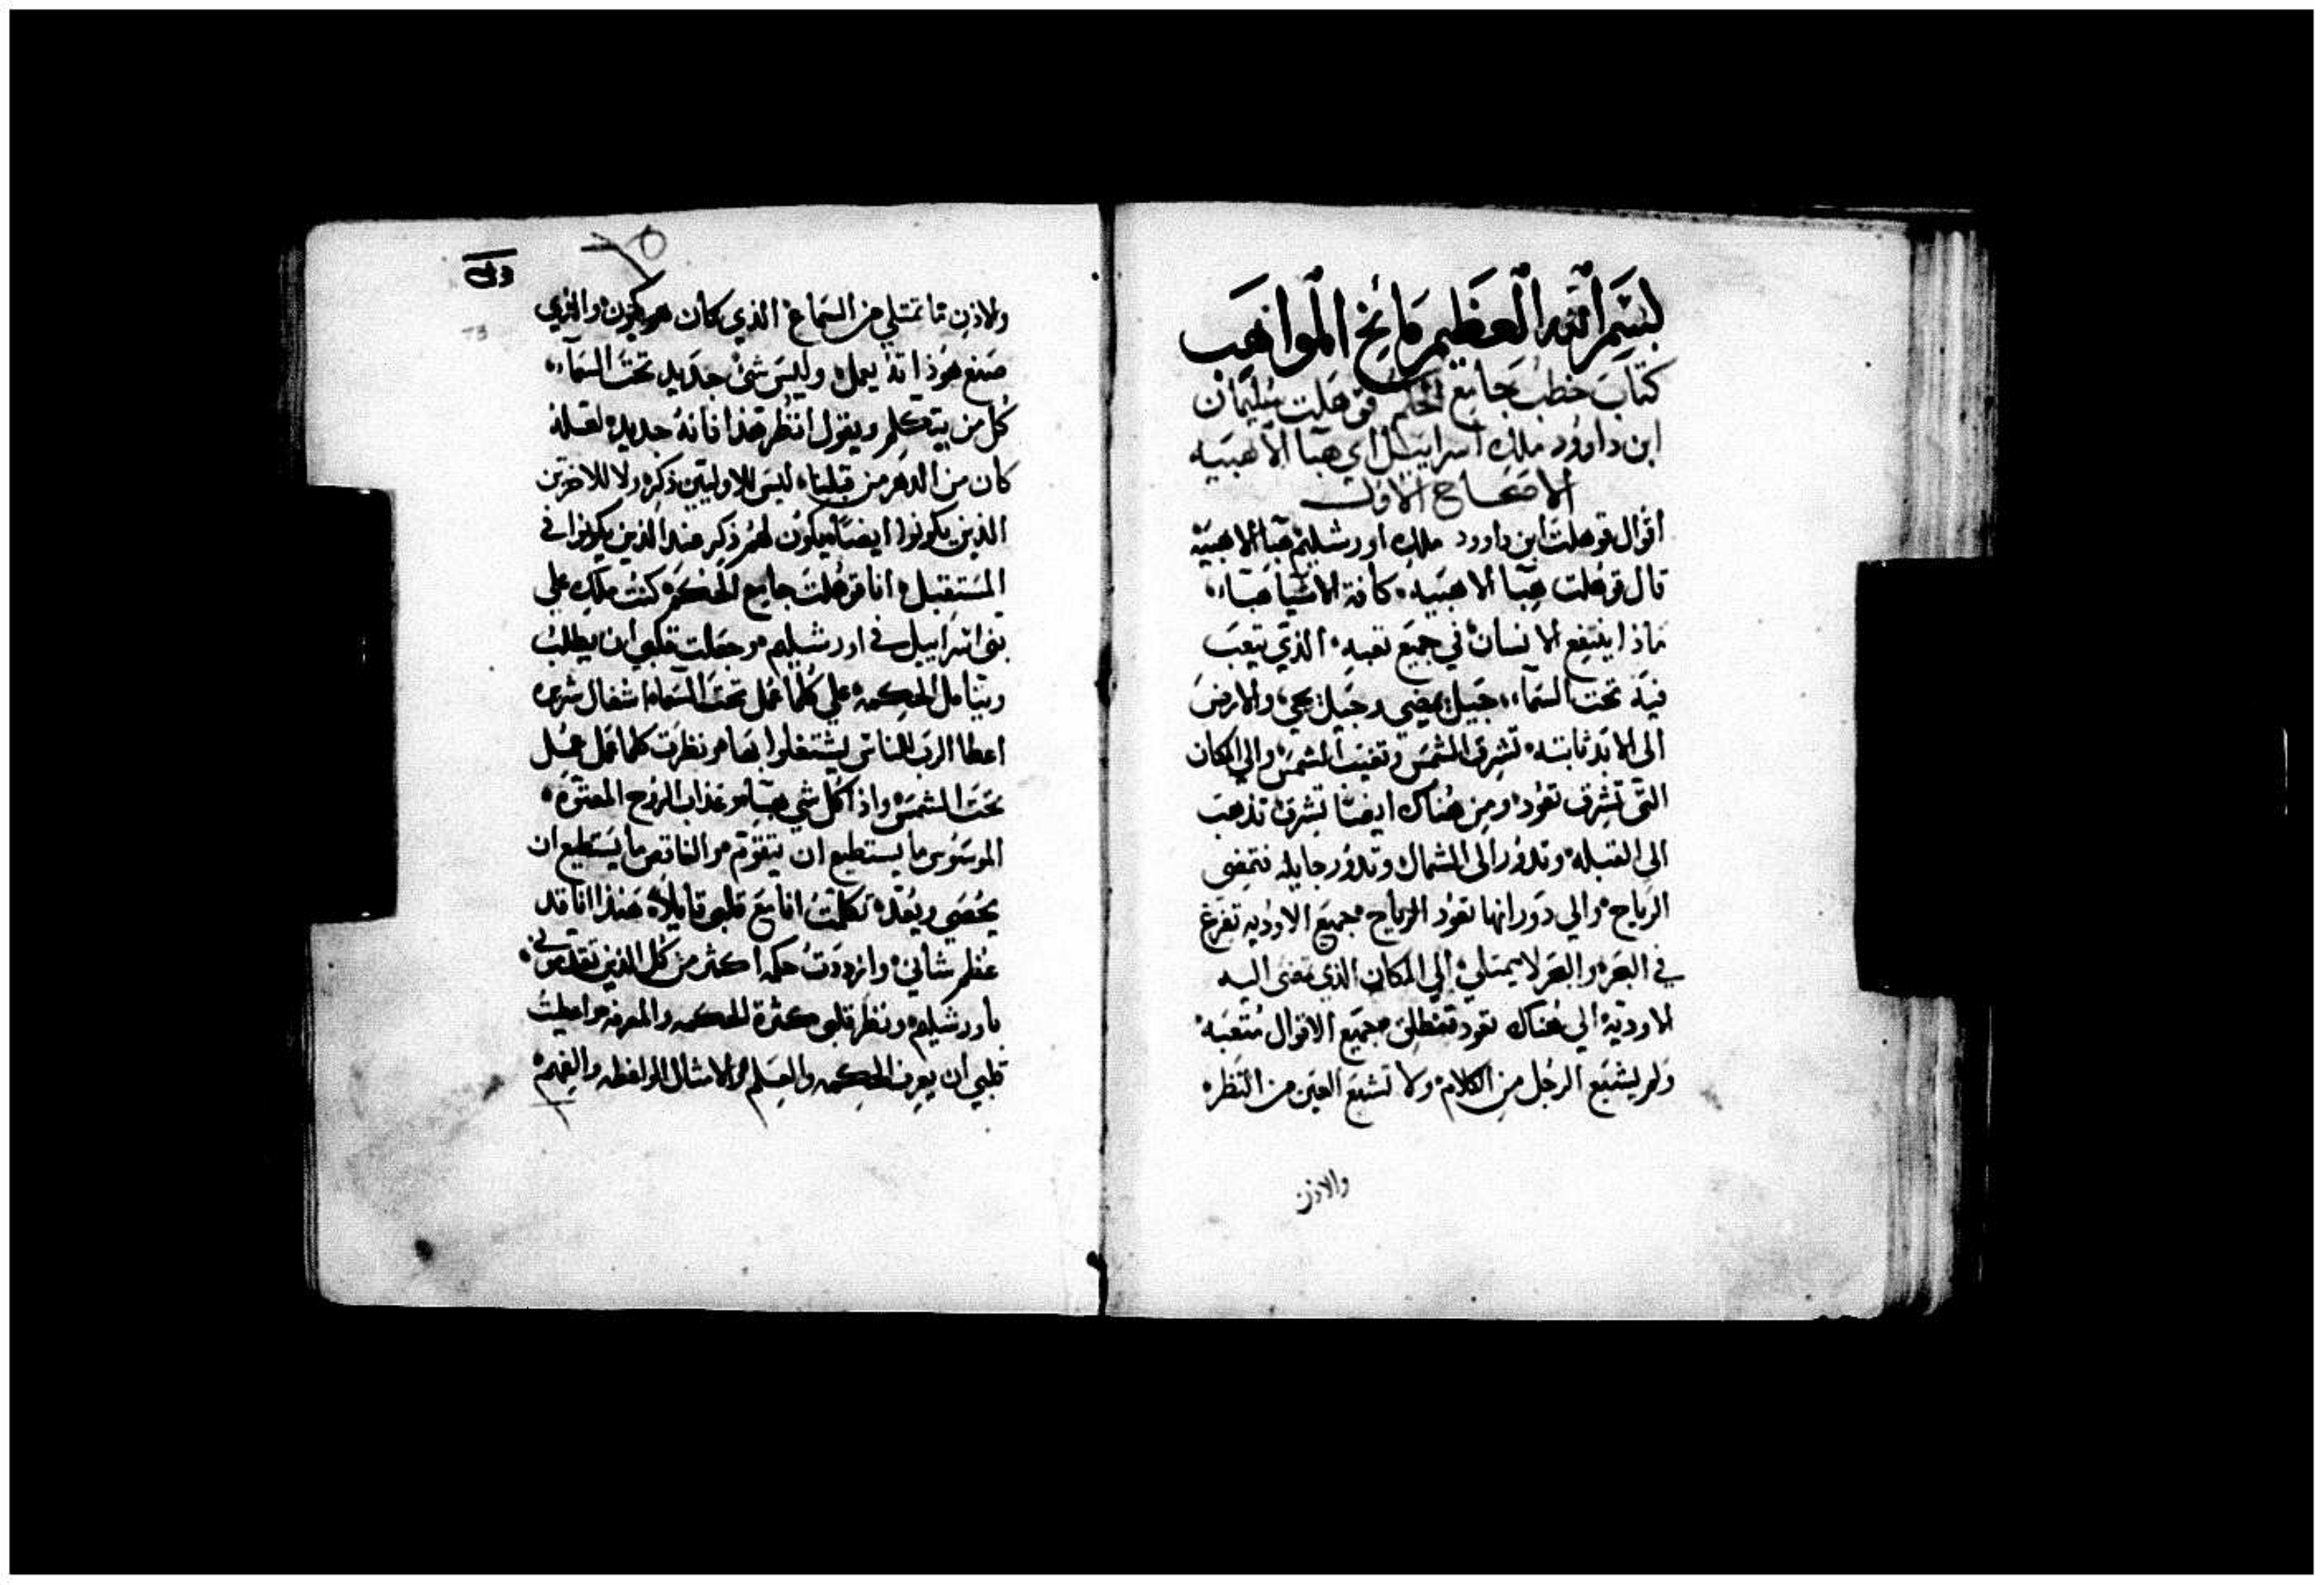 بسم الله العظيم مانح المواهب
كتاب خطب جامع الحكم قوهلت سليمان
ابن داوود ملك اسراييل اي هبا الاهبيه
الاصحاح الاول
اقوال قوهلت ابن داوود ملك اورشليم هبا الاهبيه
قال قوهلت هبا الاهبيه كافة الاشيا هباء
ماذا ينتفع الانسان في جميع تعبه الذي يتعب
فيه تحت السماء جيل يمضي وجيل يجي والارض
الى الابد ثابته تشرق الشمس وتغيب الشمس والي المكان
التى تشرق تعود ومن هناك ايضا تشرق تذهب
الى القبله وتدور الى الشمال وتدور جايله فتمضى
الرياح والي دورانها تعود الرياح جميع الاوديه تفرغ
في البحر والبحر لا يمتلي الي المكان الذي تمضى اليه
الاوديه الي هناك تعود تنطلق جميع الاقوال متعبه
ولم يشبع الرجل من الكلام ولا تشبع العين من النظر
والاذن
ولاذن ما تمتلي من السماع الذي كان هو يكون والذي
صنع هوذاته يعمل وليس شئ جديد تحت السماء
كل من يتكلم ويقول انظر هذا فانه جديد لعله
كان من الدهر من قبلنا ليس للاوليين ذكر ولا للاخرين
الذين يكونوا ايضا يكون لهم ذكر عند الذين يكونوا في
المستقبل انا قوهلت جامع الحكم كنت ملك علي
بنى اسراييل في اورشليم وجعلت قلبي ان يطلب
ويتامل الحكمه علي كلما عمل تحت السماء اشغال شريره
اعطا الرب للناس ليشتغلوا بها ونظرت كلما عمل عمل
تحت الشمس واذا كل شي هبا وعذاب الروح المعثره
الموسوس ما يستطيع ان يتقوم والناقص ما يستطيع ان
يحصي ويعد تكلمت انا مع قلبي قايلا هنذا انا قد
عظم شاني وازددت حكمه اكثر من كل الذين تقدموني
باورشليم ونظر قلبي كثرة الحكمه والمعرفه واعطيت
قلبي ان يعرف الحكمه والعلم والامثال الواعظه والفهم